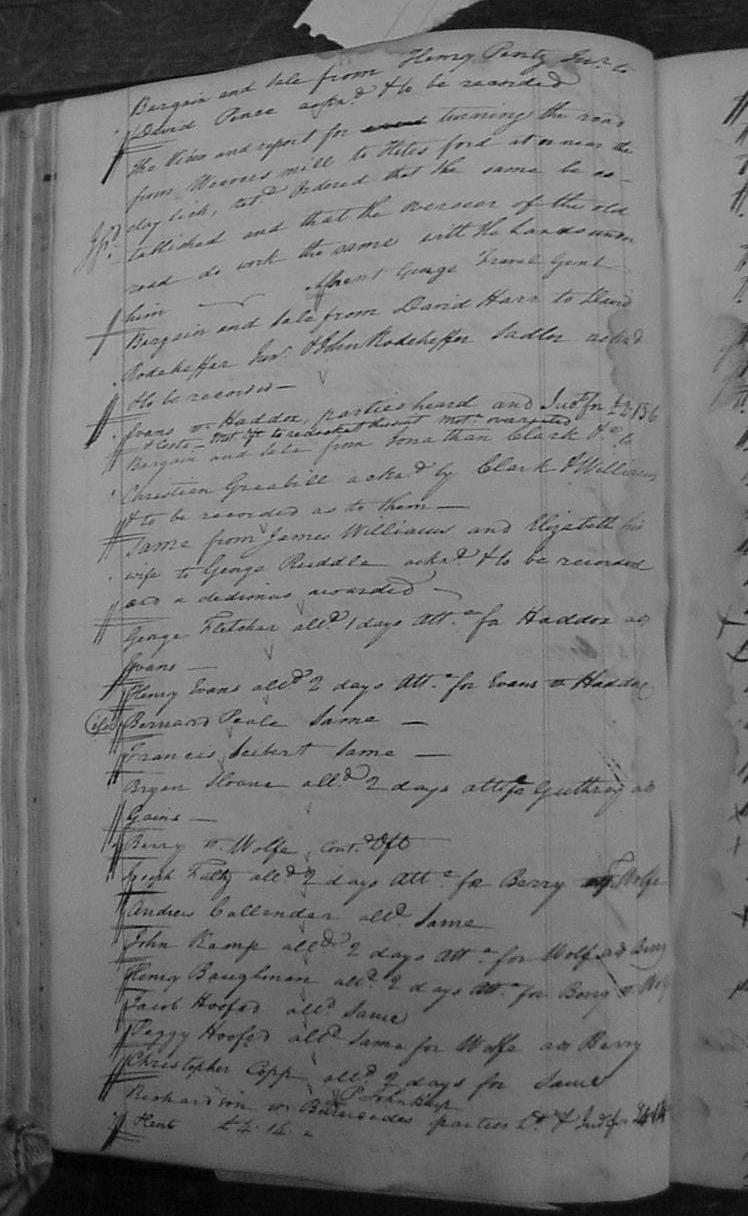 Bargain and sale from Henry Pentz Junr. to
David Pence ackd. & to be recorded
The View and report for turning the road
from Weavers mill to Hites ford at or near the
clay lick, retd. Ordered that the same be es-
tablished and that the overseer of the old
road do work the same with the hands under
him — Absent George Gent
Bargain and Sale from David Harr to David
Rodeheffer Junr. & John Rodeheffer Sadler ackd.
& to be recorded —
Evans vs. Haddox, parties heard and Judt. for £2.15.6
& Costs — Mot. to redocket this suit Motn. overruled
Bargain and sale from Jonathan Clark &c to
Christian Graebill ackd. by Clark & Williams
& to be recorded as to them —
Same from James Williams and Elizabeth his
wife to George Ruddle ackd. & to be recorded
and a dedimus awarded —
George Fletcher alld. 1 days Atte. for Haddox ads
Evans —
Henry Evans alld. 2 days Atte. for Evans vs Haddox
Bernard Peale Same —
Francis Seibert Same —
Bryan Sloane alld. 2 days atte for Guthrey ads
Gains —
Berry vs. Wolfe, Cont. Dft
Joseph Fultz alld. 2 days Atte. for Berry Wolfe
Andrew Callender alld. Same
John Kamp alld. 2 days Atte. for Wolfe ads Berry
Henry Baughman alld. 2 days Atte. for Berry vs. Wolfe
Jacob Hoofed alld. Same
Peggy Hoofed alld. Same for Wolfe ads Berry
Christopher Copp alld. 2 days for Same
Richardson vs. Burnsides parties hd. & Judt. for
Rent £4.14.